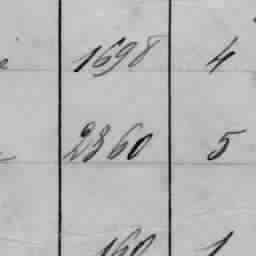 1698 4
2360 5
160 1